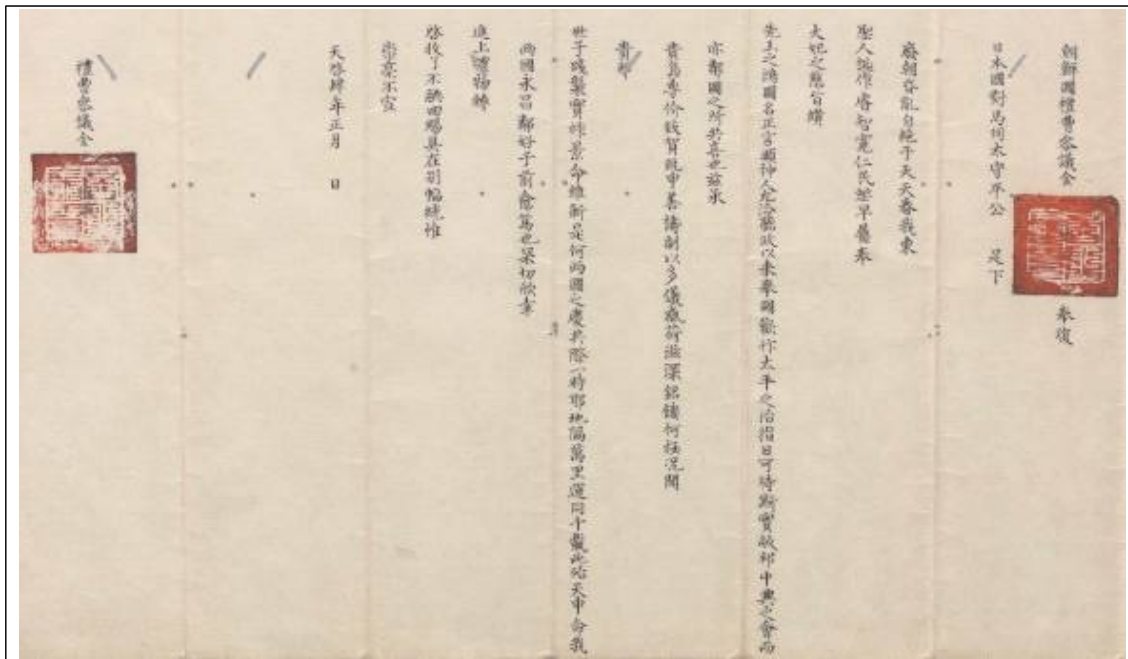 朝鮮國禮曹參議金 奉復
日本國對馬州太守平公 足下
廢朝昏亂自絶于天天眷我東
聖人誕作睿智寬仁民 早屬奉
大妃之慈旨纘
先王之鴻圖名正言順神人允洽 政以來奉國歡忭太平之治指日可待斯實敝邦中興之會而
亦鄰國之所共喜也玆承
貴島專价致賀旣申善禱副以多儀感荷滋深銘鏤何極況聞
貴邦
世子踐襲實祚景命維新是何兩國之慶共際一時耶地隔萬里運同千載此殆天申命我
兩國永固鄰好于前愈篤也深切欣幸
進上禮物轉
啓收了不腆回賜具在別幅統惟
崇亮不宣
天啓肆年正月 日
禮曹參議金